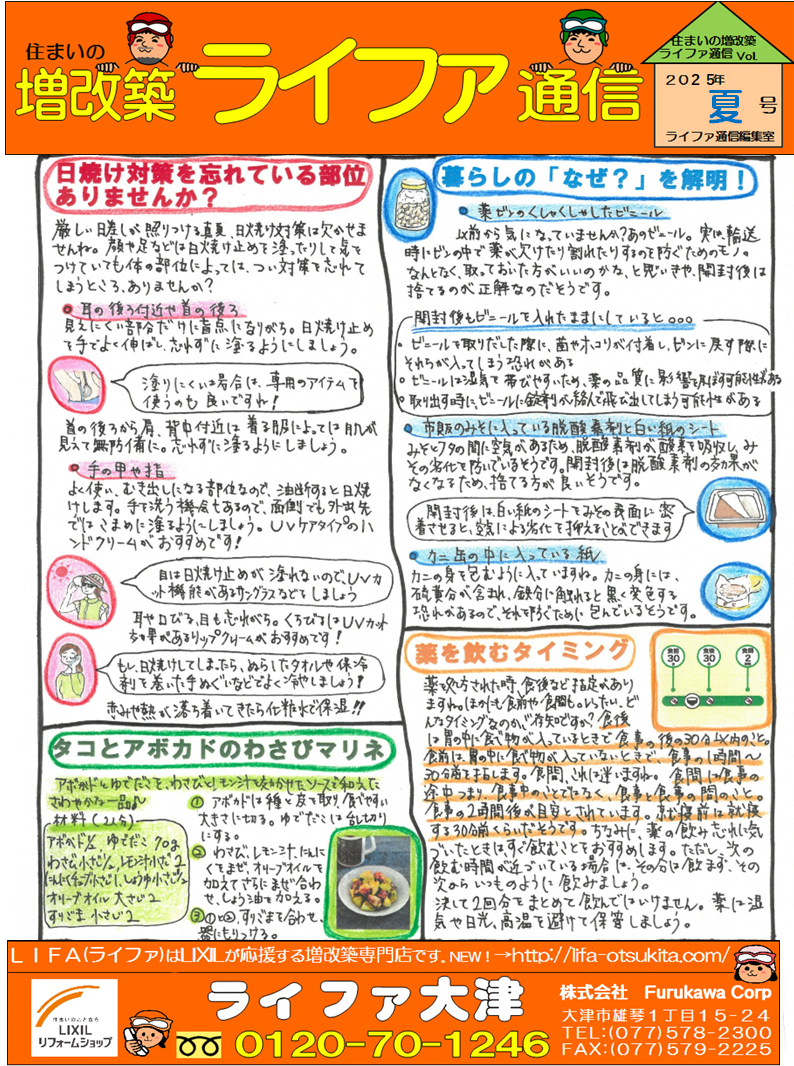 住まいの
増改築 ライファ通信
住まいの増改築
ライファ通信 Vol.
2025年
夏号
ライファ通信編集室
日焼け対策を忘れている部位
ありませんか？
厳しい日差しが照りつける真夏、日焼け対策は欠かせま
せんね。顔や足などは日焼け止めを塗ったりして気を
つけていても体の部位によっては、つい対策を忘れて
しまうところ、ありませんか？
耳の後ろ付近や首の後ろ
見えにくい部分だけに盲点になりがち。日焼け止め
を手でよく伸ばし、忘れずに塗るようにしましょう。
塗りにくい場合は、専用のアイテムを
使うのも良いですね！
首の後ろから肩、背中付近は着る服によっては肌が
見えて無防備に。忘れずに塗るようにしましょう。
手の甲や指
よく使い、むき出しになる部位なので、油断すると日焼
けします。手を洗う機会もあるので、面倒でも外出先
ではこまめに塗るようにしましょう。UVケアタイプのハ
ンドクリームがおすすめです！
目は日焼け止めが塗れないので、UVカ
ット機能があるサングラスなどをしましょう
耳や口びる、目も忘れがち。くちびるにはUVカット
効果があるリップクリームがおすすめです！
もし、日焼けしてしまったら、ぬらしたタオルや保冷
剤を巻いた手ぬぐいなどでよく冷やしましょう！
赤みや熱が落ち着いてきたら化粧水で保湿!!
タコとアボカドのわさびマリネ
アボカドとゆでだこを、わさびとレモン汁をきかせたソースで和えた
さわやかな一品♪
材料(2人分)
アボカド1/2、ゆでだこ 90g
わさび小さじ1/2、レモン汁小さじ2
にんにくチューブ小さじ1、しょうゆ小さじ1/2
オリーブオイル 大さじ2
すりごま 小さじ2
① アボカドは種と皮を取り食べやすい
大きさに切る。ゆでだこは乱切り
にする。
② わさび、レモン汁、にんに
くをまぜ、オリーブオイルを
加えてさらにまぜ合わ
せ、しょう油を加える。
③ ①②、すりごまを合わせ、
器にもりつける。
暮らしの「なぜ？」を解明！
薬ビンのくしゃくしゃしたビニール
以前から気になっていませんか？あのビニール。実は、輸送
時にビンの中で薬が欠けたり割れたりするのを防ぐためのモノ。
なんとなく、取っておいた方がいいのかな、と思いきや、開封後は
捨てるのが正解なのだそうです。
開封後もビニールを入れたままにしていると。。。
・ビニールを取りだした際に、菌やホコリが付着し、ビンに戻す際に
それらが入ってしまう恐れがある
・ビニールは湿気を帯びやすいため、薬の品質に影響を及ぼす可能性がある
・取り出す時に、ビニールに錠剤が絡んで飛び出してしまう可能性がある
市販のみそに入っている脱酸素剤と白い紙のシート
みそとフタの間に空気があるため、脱酸素剤が酸素を吸収し、み
その劣化を防いでいるそうです。開封後は脱酸素剤の効果が
なくなるため、捨てる方が良いそうです。
開封後は、白い紙のシートをみその表面に密
着させると、空気による劣化を抑えることができます
カニ缶の中に入っている紙
カニの身を包むように入っていますね。カニの身には、
硫黄分が含まれ、鉄分に触れると黒く変色する
恐れがあるので、それを防ぐために包んでいるそうです。
薬を飲むタイミング
食前
30
食後
30
食間
2
薬を処方された時、食後など指定があり
ますね。ほかにも食前や食間もしらたい、ど
んなタイミングなのか、ご存知ですか？食後
は胃の中に食べ物が入っているときで食事の後の30分以内のこと。
食前は、胃の中に食べ物が入っていないときで、食事の1時間〜
30分前を指します。食間、これは迷いますね。食間は食事の
途中、つまり食事中のことではなく、食事と食事の間のこと。
食事の2時間後が目安とされています。就寝前は就寝
する30分前くらいだそうです。ちなみに、薬の飲み忘れに気
づいたときはすぐ飲むことをおすすめします。ただし、次の
飲む時間が近づいている場合は、その分は飲まず、その
次からいつものように飲みましょう。
決して2回分をまとめて飲んではいけません。薬は湿
気や日光、高温を避けて保管しましょう。
LIFA(ライファ)はLIXILが応援する増改築専門店です。NEW！→http://lifa-otsukita.com/
住まいのことなら
LIXIL
リフォームショップ
ライファ大津
0120-70-1246
株式会社 Furukawa Corp
大津市雄琴1丁目15-24
TEL:(077)578-2300
FAX:(077)579-2225